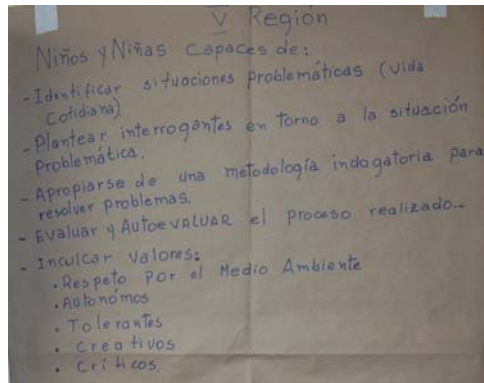 V Región
Niños y Niñas capaces de:
- Identificar situaciones problemáticas (vida
cotidiana)
- Plantear interrogantes en torno a la situación
problemática.
- Apropiarse de una metodología indagatoria para
resolver problemas.
- Evaluar y AutoeVALUAR el proceso realizado..
- Inculcar valores:
• Respeto por el Medio Ambiente
• Autonómos
• Tolerantes
• Creativos
• Críticos.